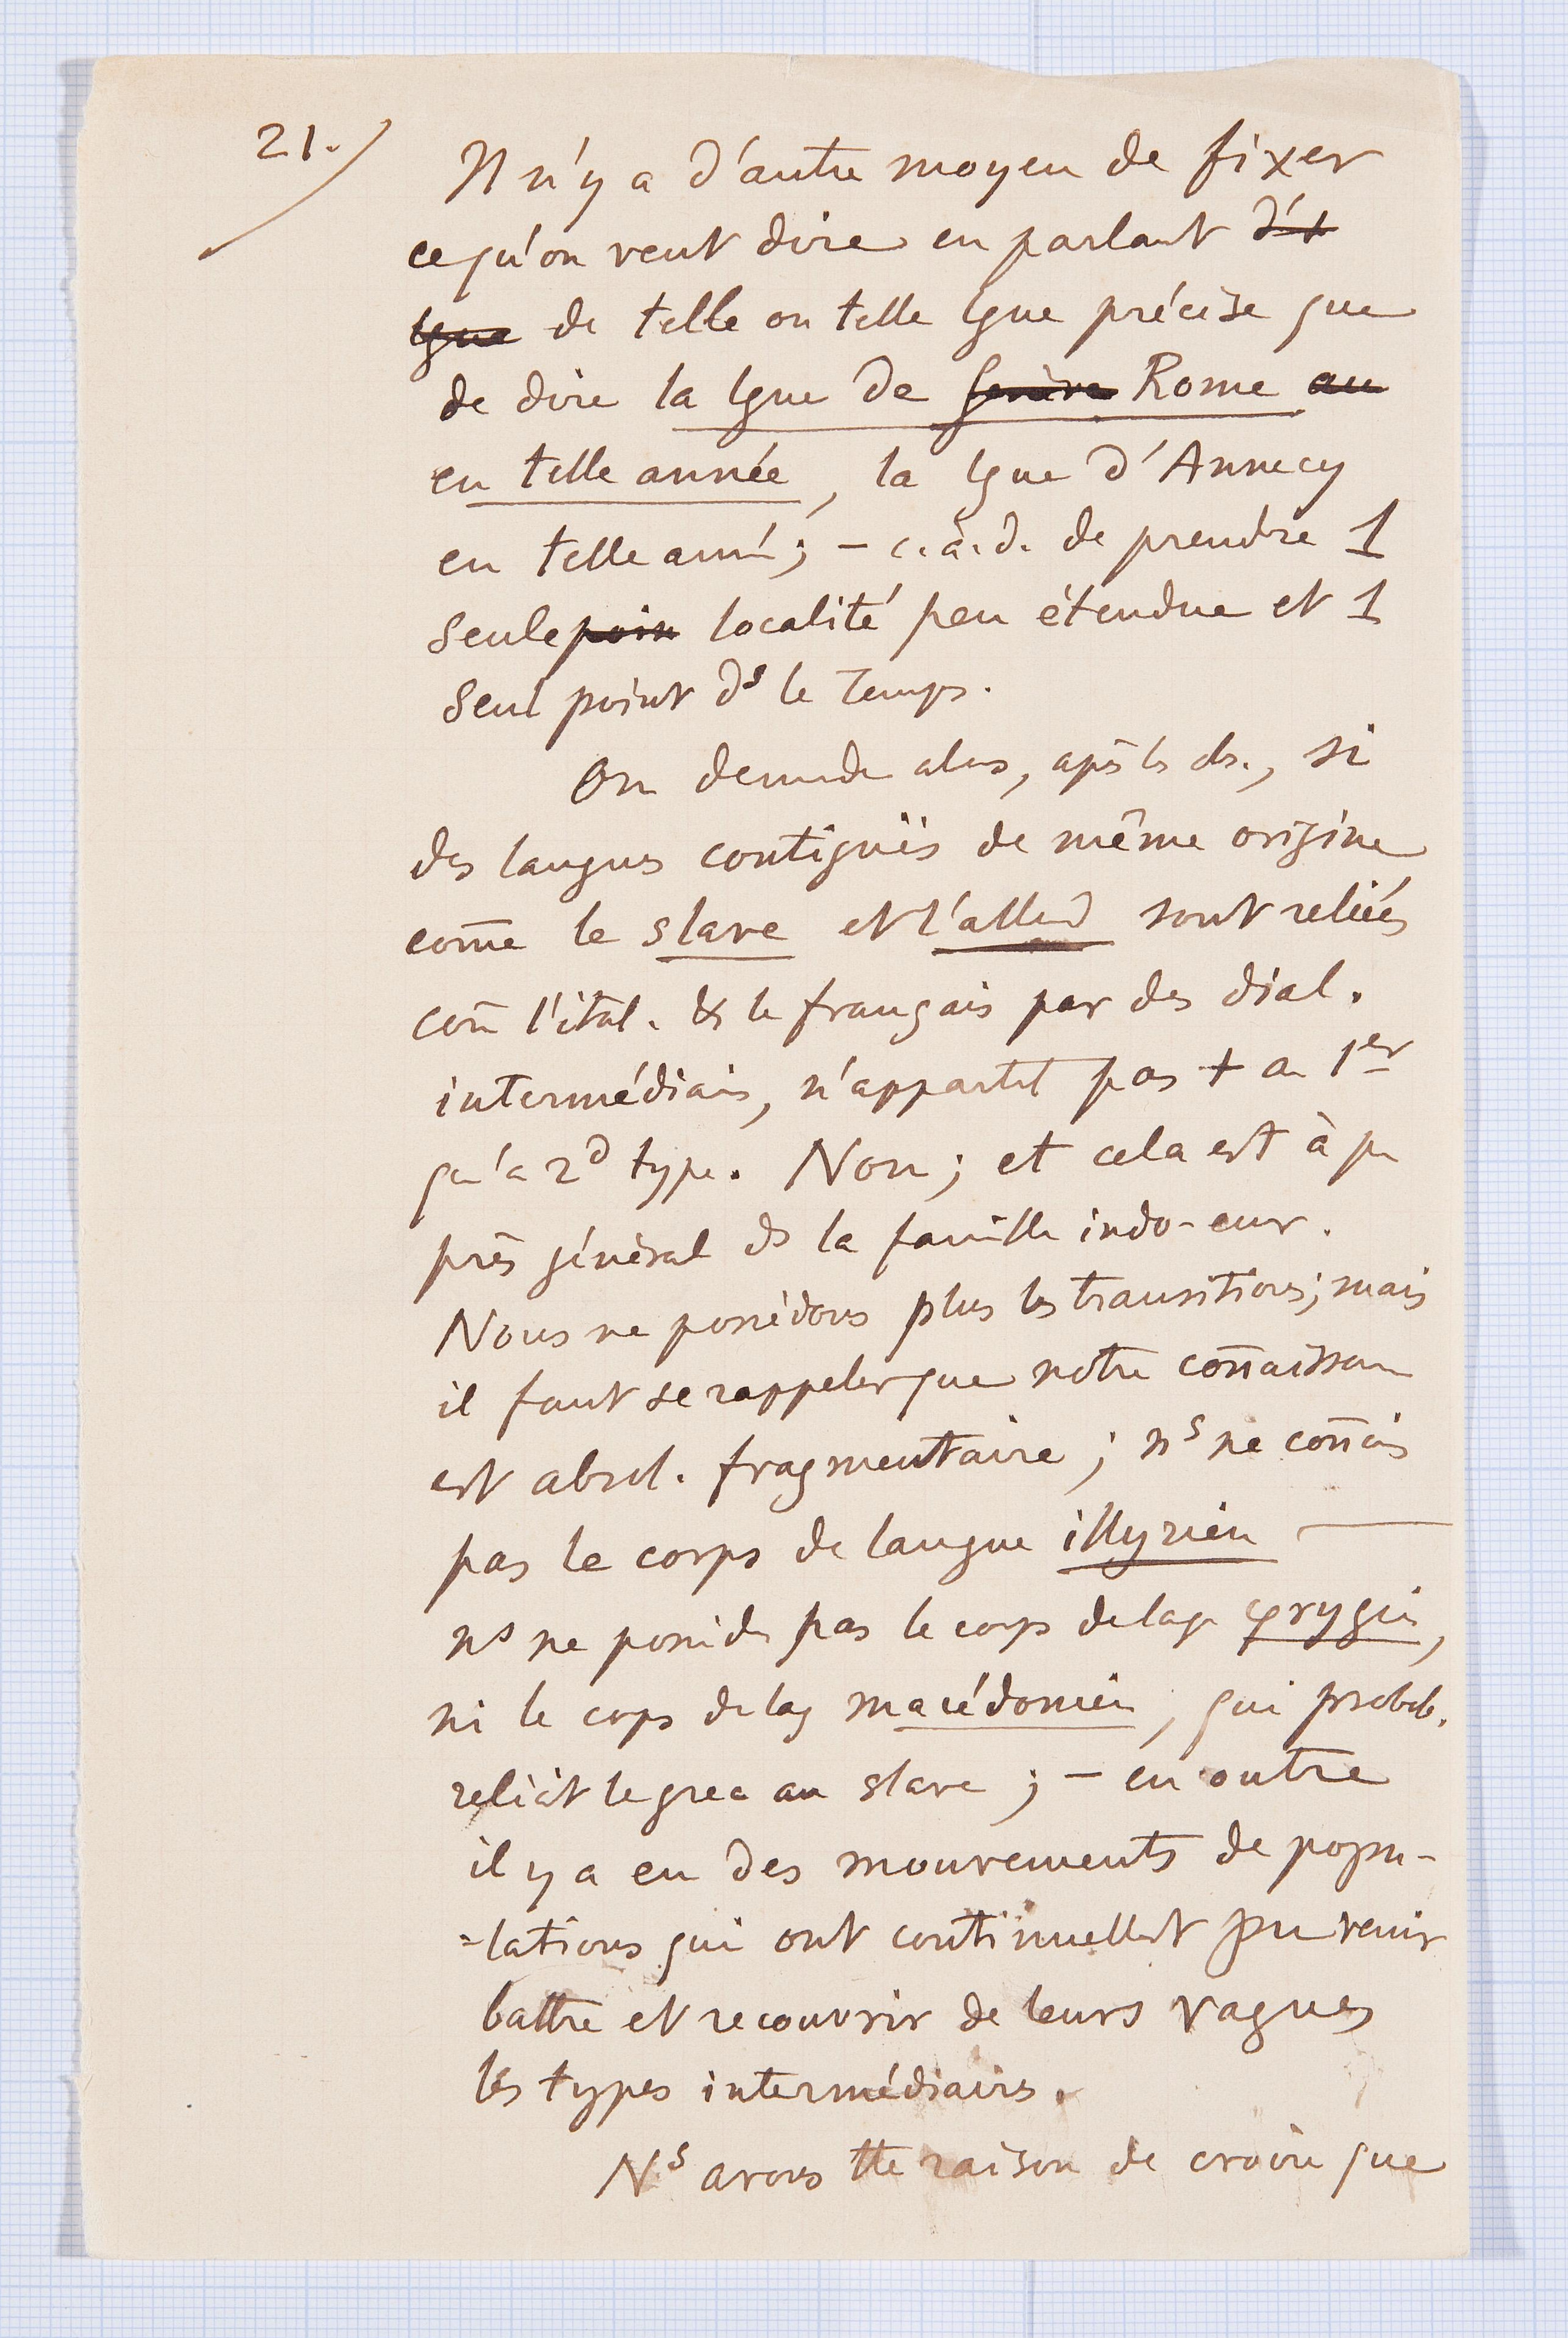 21.
Il n'y a d'autre moyen de fixer
ce qu'on veut dire en parlant d'1
lgue de telle ou telle lgue précise que
de dire la lgue de Genève Rome au
en telle année, la lgue d'Annecy
en telle anné; – c.à.d. de prendre 1
seule poin localité peu étendue et 1
seul point ds le temps.
On demde alors, après les chs., si
des langues contiguës de même origine
come le slave et l'allemd sont reliées
com l'ital. & le français par des dial.
intermédiaires, n'appartt pas + au 1er
qu'au 2d type. Non; et cela est à peu
près général ds la famille indo-eur.
Nous ne possédons plus les transitions; mais
il faut se rappeler que notre conaissance
est absol. fragmentaire; ns ne conais
pas le corps de langue illyrien —
ns ne posséds pas le corps de lage φrygien,
ni le corps de lag macédonien, qui probab.
reliait le grec au slave; – en outre
il y a eu des mouvements de popu-
-lations qui ont continuellet pu venir
battre et recouvrir de leurs vagues
les types intermédiaires.
Ns avons tte raison de croire que